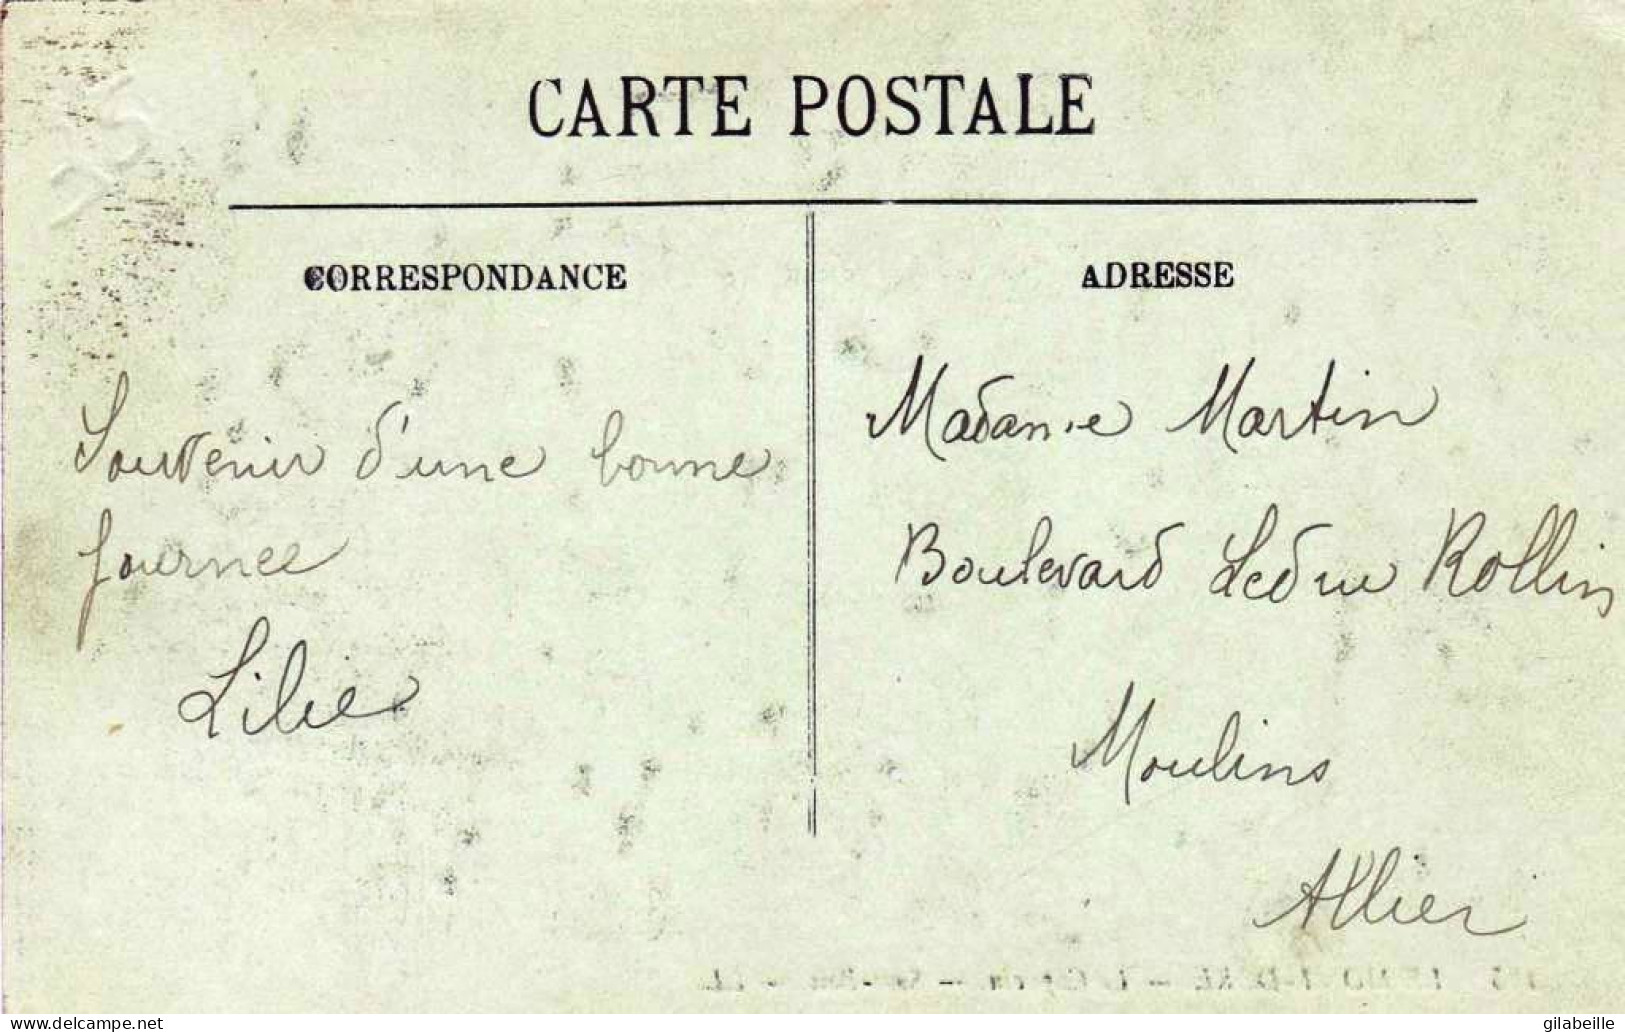 CARTE POSTALE
CORRESPONDANCE
Souvenir d'une bonne
journee
Lilie
ADRESSE
Madame Martin
Boulevard Ledru Rollin
Moulins
Allier
www.delcampe.net
gilabeille